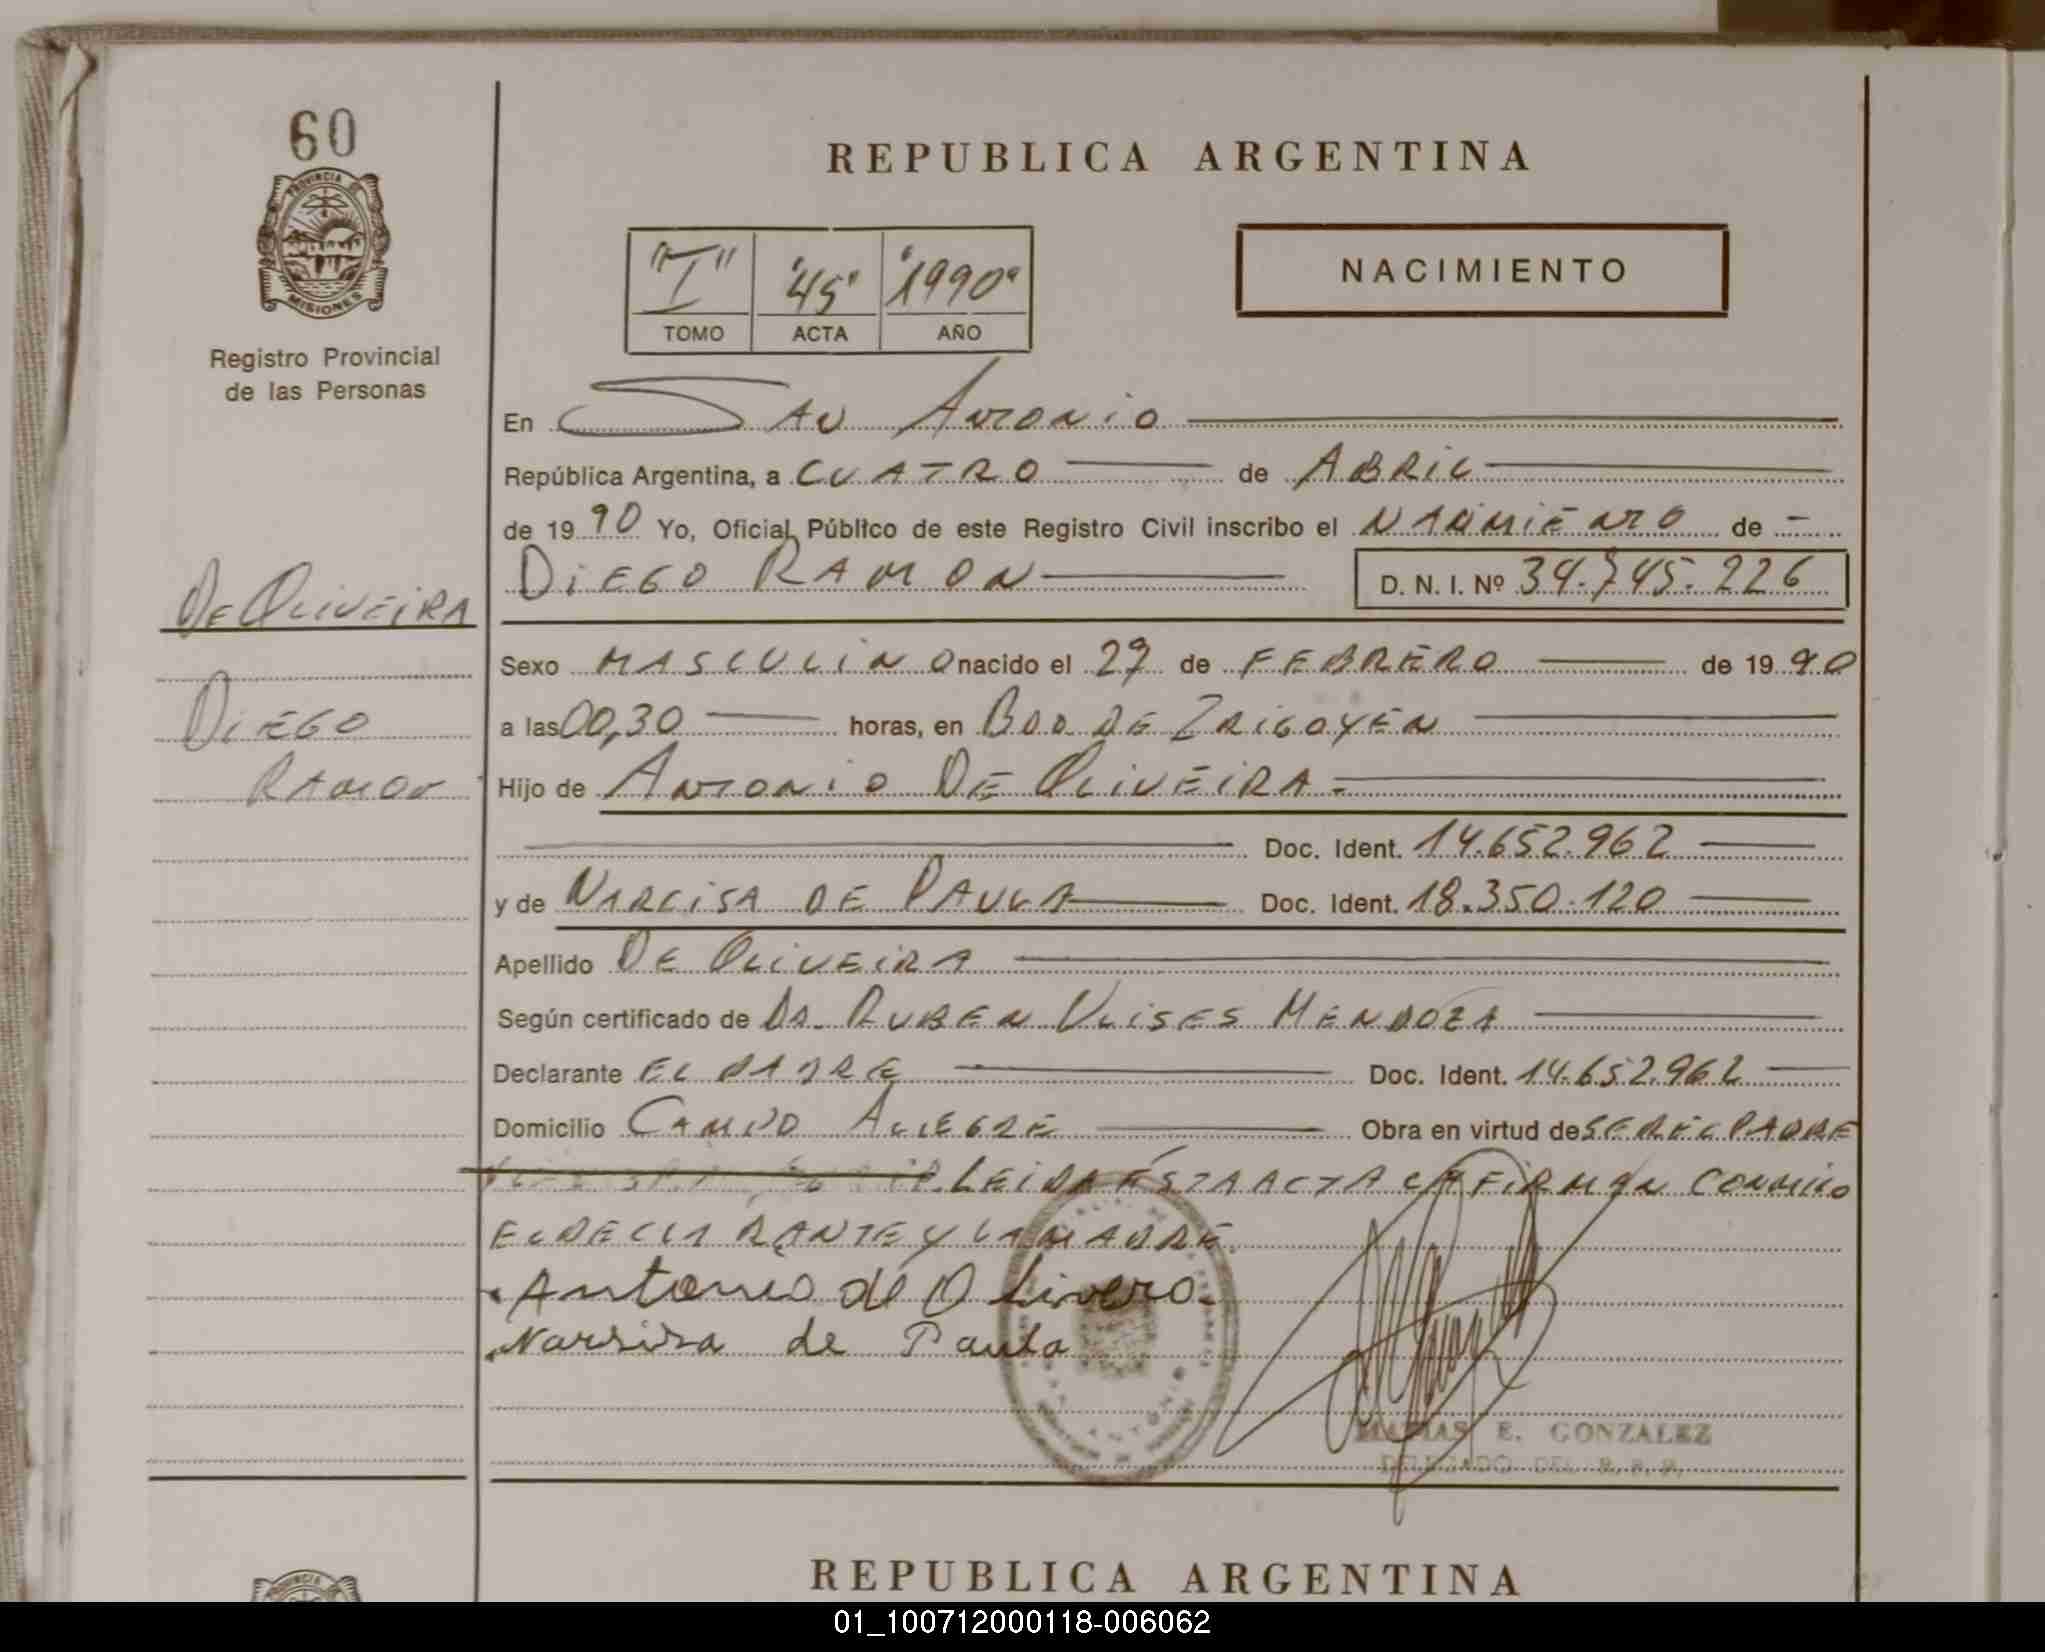 60
PROVINCIA DE
MISIONES
Registro Provincial
de las Personas
De Oliveira
Diego
Ramon
REPUBLICA ARGENTINA
"I" "45" "1990"
TOMO ACTA AÑO
NACIMIENTO
En San Antonio
República Argentina, a CUATRO de ABRIL
de 1990 Yo, Oficial Público de este Registro Civil inscribo el NACIMIENTO de
DIEGO RAMON D. N. I. Nº 34.745.226
Sexo MASCULINO nacido el 27 de FEBRERO de 1990
a las 00,30 horas, en Bdo. DE IRIGOYEN
Hijo de ANTONIO DE OLIVEIRA
Doc. Ident. 14.652.962
y de NARCISA DE PAULA Doc. Ident. 18.350.120
Apellido DE OLIVEIRA
Según certificado de DR. RUBEN ULISES MENDOZA
Declarante EL PADRE Doc. Ident. 14.652.962
Domicilio CAMPO ALEGRE Obra en virtud de SER EL PADRE
LEIDA ÉSTA ACTA LA FIRMAN CONMIGO
EL DECLARANTE Y LA MADRE.
Antonio de Olivero
Narsisa de Paula
MATIAS E. GONZALEZ
DELEGADO DEL R. P. P.
REPUBLICA ARGENTINA
PROVINCIA
01_100712000118-006062